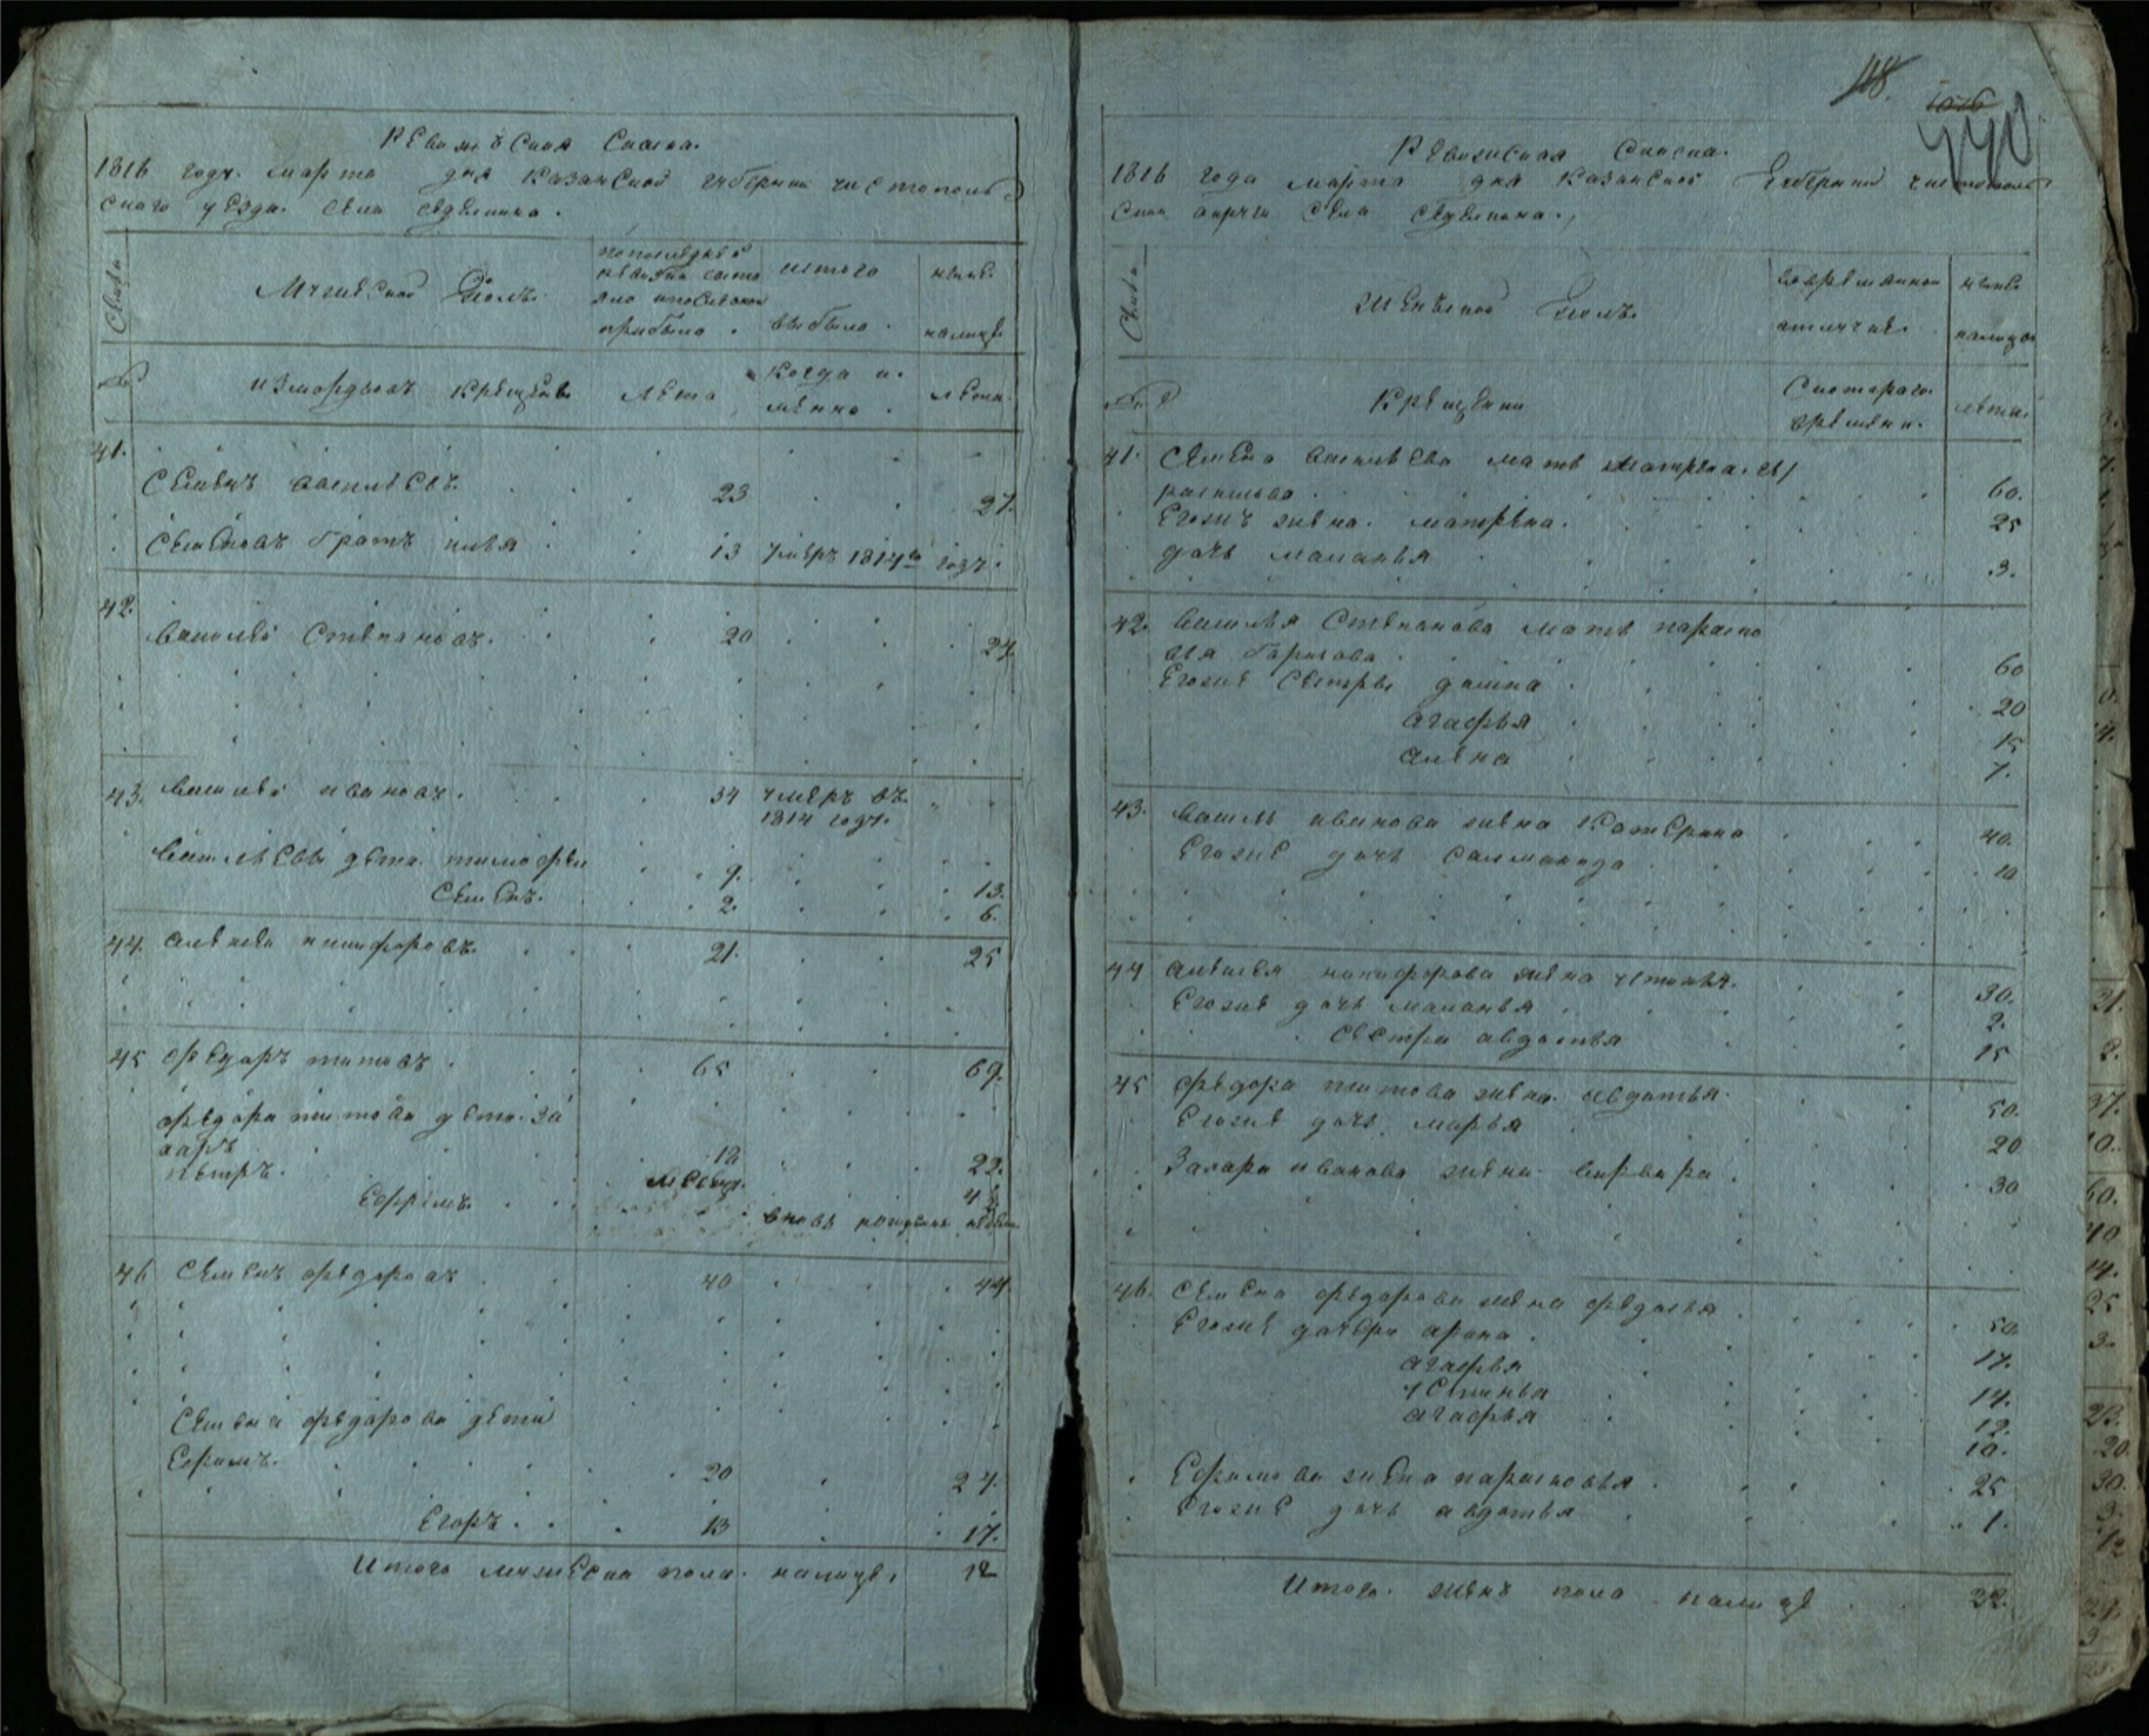 Ревизъская Скаска.
1816 годʏ. марта дня Казанской губернии чистополь
скаго уезда. Села седелкина.
Семьи
Мужеской Полъ.
по последней ревизии состо
яло и после оной
прибыло.
исъ того
выбыло.
ныне
налице
№
измордвовъ крещеных
лета
когда и
менно.
лета.
41.
Семенъ васильевъ. 23 27.
Семеновъ братъ илья 13 умеръ 1814го году.
42.
василей Степановъ. 20 24.
43. василей ивановъ. 34 умеръ въ
1814 году.
васильевы дети. тимофей 9. 13.
Семенъ. 2. 6.
44. алексей никифоровъ. 21. 25
45 федоръ титовъ 65 69.
федора титова дети. за
харъ 18 22.
петръ. месецъ. 4
Ефремъ. вновь рожденъ
46 Семенъ федоровъ 40 44.
Семена федорова дети
Ефимъ. 20 24.
Егоръ. 13 17.
Итого мужеска пола. налице, 12
118.
1026
440
Ревизиская Скаска.
1816 года марта дня Казанской Губернии чистополь
ской округи Села Седелкина.
Семьи
Женъской полъ.
вовременной
отлучке.
ныне
налице
№
Крещении
Скотораго
времени.
лета.
41. Семена васильева мать матрена. ге/
расимова 60.
Егожъ жена. матрена. 25
дочь маланья 3.
42. василья Степанова мать параско
вья борисова 60
Егоже Сестры домна 20
агафья 15
алена 7.
43. василья иванова жена Катерина 40.
Егоже дочь Саламанида 10
44 алексея никифорова жена устинья. 30.
Егоже дочь маланья 2.
Сестра авдотья 15
45 федора титова жена. авдотья. 50.
Егоже дочь. марья 20
Захара иванова жена. варвара 30
46. Семена федорова жена федосья 50.
Егоже дочери арина 17.
агафья 14.
устинья 12.
агафья 10.
Ефимова жена парасковья 25
Егоже дочь авдотья 1.
Итого. женъ пола налице 22.